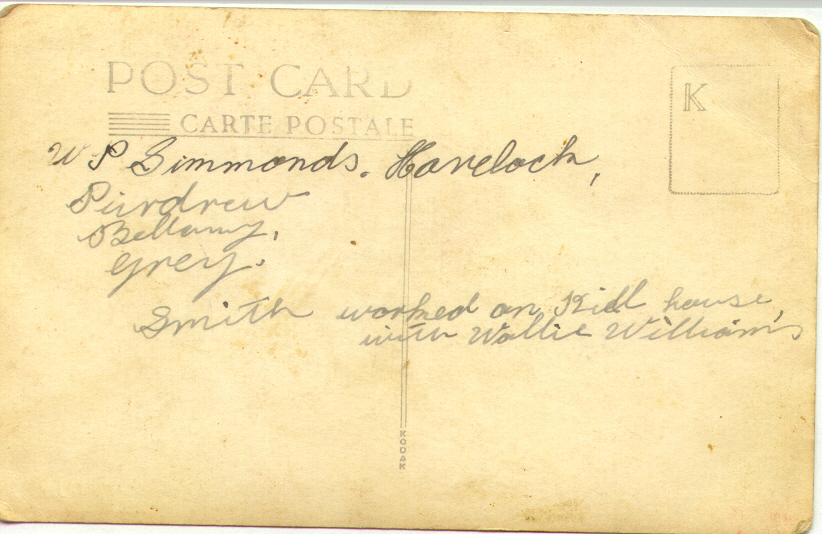 POST CARD
CARTE POSTALE
K
W P Simmonds. Havelock,
Purdrew
Bellamy,
Grey.
Smith worked on Kill house,
with Wallie Williams
KODAK